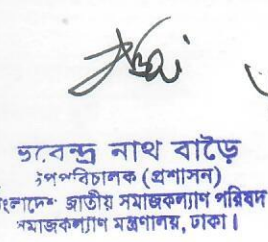 নাথ বাড়ৈ
উপপরিচালক (প্রশাসন)
বাংলাদেশ জাতীয় সমাজকল্যাণ পরিষদ
সমাজকল্যাণ মন্ত্রণালয়, ঢাকা।